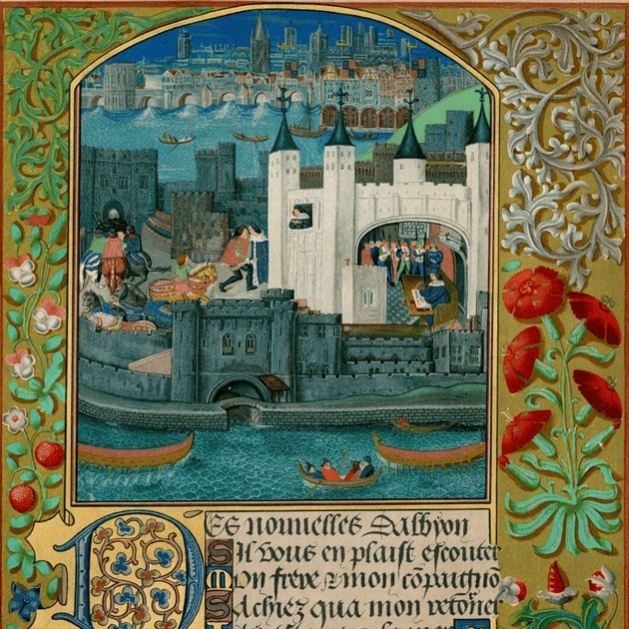 DES nouuelles Dalbyon
Sil vous en plaist escouter
Mon frere & mon cōpaignō
Sachiez qua mon retoner